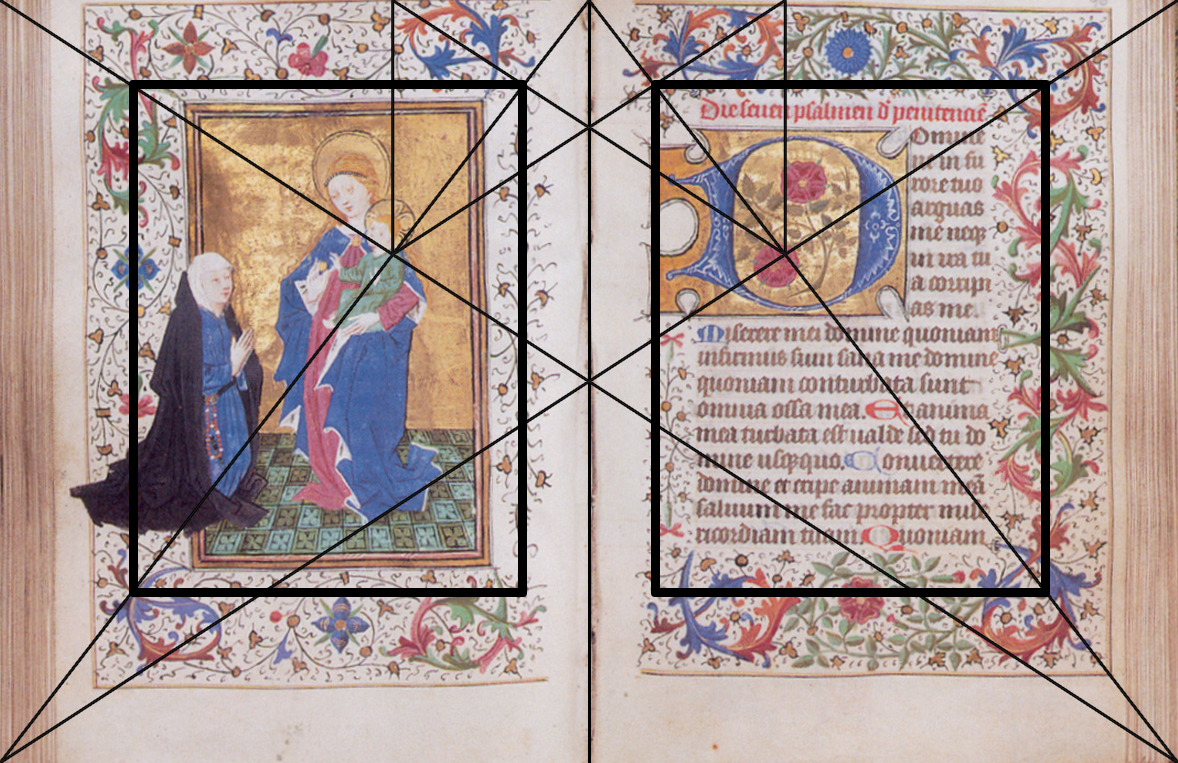 Die seuen psalmen d penitenciē
DOmine
ne in fu
rore tuo
arguas
me neq;
in ira tu
a corripi
as me.
Miserere mei domine quoniam
infirmus sum sana me domine
quoniam conturbata sunt
omnia ossa mea. Et anima
mea turbata est ualde sed tu do
mine usq;quo. Conuertere
domine et eripe animam meā
saluum me fac propter mise
ricordiam tuam Quoniam